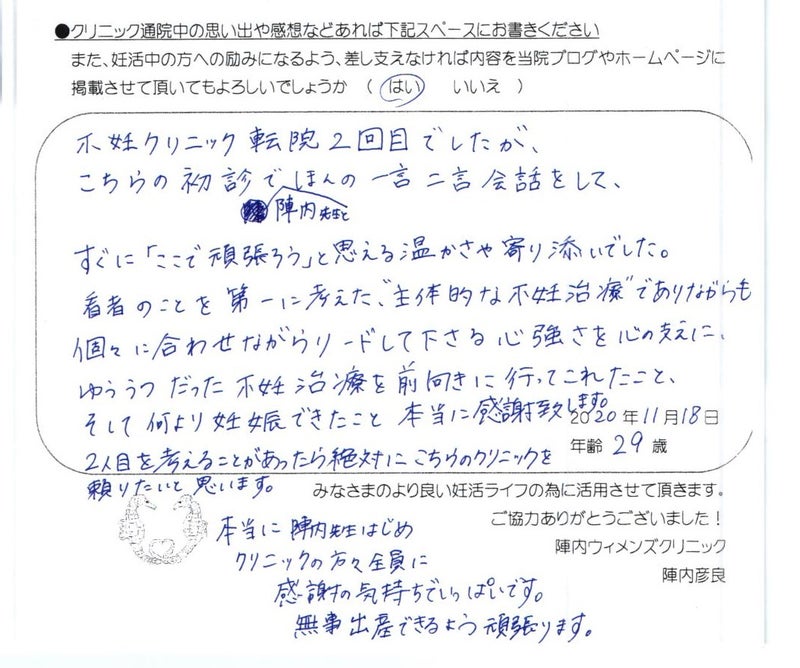 ●クリニック通院中の思い出や感想などあれば下記スペースにお書きください
また、妊活中の方への励みになるよう、差し支えなければ内容を当院ブログやホームページに
掲載させて頂いてもよろしいでしょうか ( はい いいえ )
不妊クリニック転院2回目でしたが、
こちらの初診でほんの一言二言会話をして、
陣内先生と
すぐに「ここで頑張ろう」と思える温かさや寄り添いでした。
患者のことを第一に考えた、"主体的な不妊治療"でありながらも
個々に合わせながらリードして下さる心強さを心の支えに、
ゆううつだった不妊治療を前向きに行ってこれたこと、
そして何より妊娠できたこと本当に感謝致します。
2020年11月18日
2人目を考えることがあったら絶対にこちらのクリニックを
年齢 29歳
頼りたいと思います。
みなさまのより良い妊活ライフの為に活用させて頂きます。
ご協力ありがとうございました!
本当に陣内先生はじめ
陣内ウィメンズクリニック
クリニックの方々全員に
陣内彦良
感謝の気持ちでいっぱいです。
無事出産できるよう頑張ります。